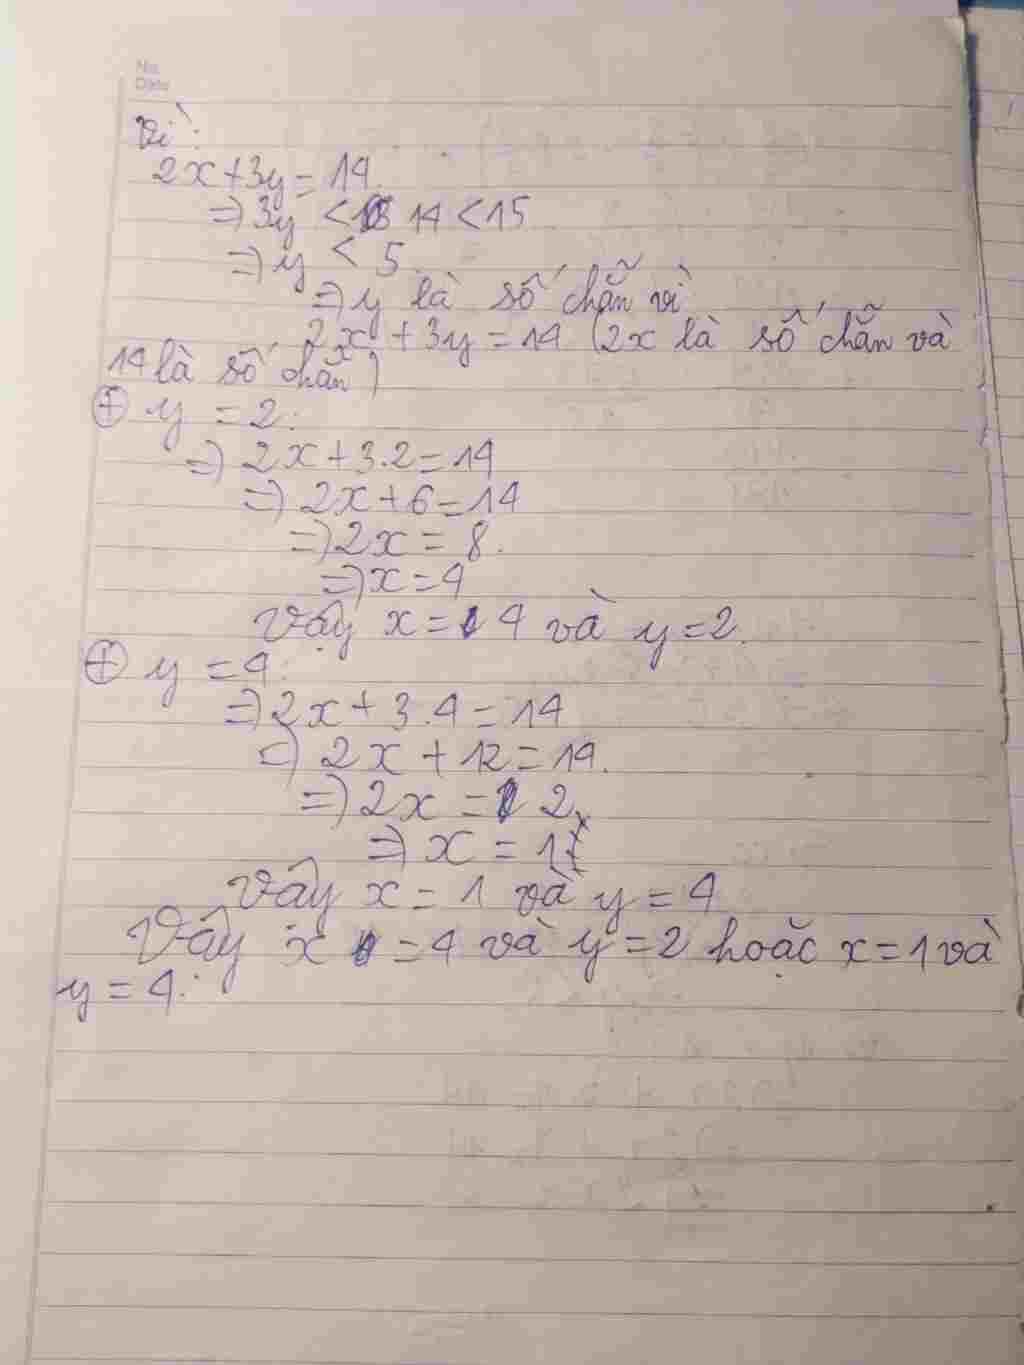 No.
Date
Vì:
2x+3y=14.
=> 3y < 14 < 15
=> y < 5.
=> y là số chẵn vì
2x + 3y = 14 (2x là số chẵn và
14 là số chẵn)
+ y = 2:
=> 2x+3.2=14
=> 2x+6=14
=> 2x = 8.
=> x=4
Vậy x = 4 và y=2.
+ y = 4:
=> 2x + 3.4 = 14
=> 2x + 12 = 14.
=> 2x = 2
=> x = 1
Vậy x = 1 và y = 4
Vậy x = 4 và y = 2 hoặc x = 1 và
y = 4.